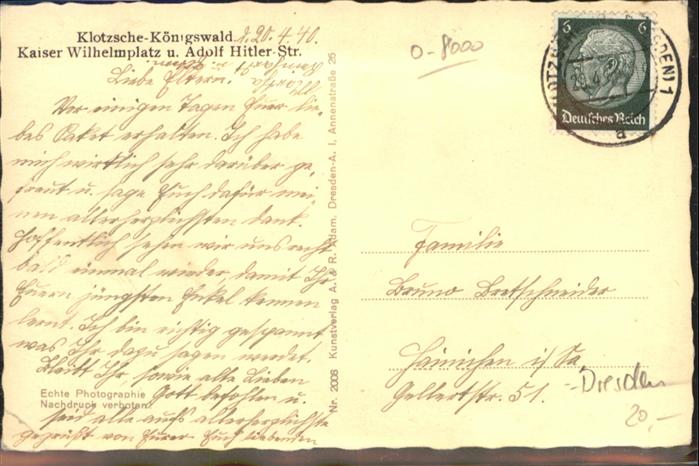 Klotzsche-Königswald
Kaiser Wilhelmplatz u. Adolf Hitler-Str.
d. 20.4.40.
Liebe Eltern!
Vor einigen Tagen Euer lie-
bes Paket erhalten. Ich habe
mich wirklich sehr darüber ge-
freut u. sage Euch dafür mei-
nen allerherzlichsten Dank.
Hoffentlich sehen wir uns recht
bald einmal wieder, damit Ihr
Euern jüngsten Enkel kennen
lernt. Ich bin richtig gespannt
was Ihr dazu sagen werdet.
Bleibt Ihr, sowie alle Lieben
Gott befohlen u.
seid alle aufs allerherzlichste
gegrüßt von Eurer Euch liebenden
Echte Photographie
Nachdruck verboten
Nr. 2008 Kunstverlag A. & R. Adam, Dresden-A. I, Annenstraße 25
0-8000
6 6
Deutsches Reich
a
Familie
Bruno Bretschneider
Hainichen i/Sa
Gellertstr. 51.
-Dresden
20,-